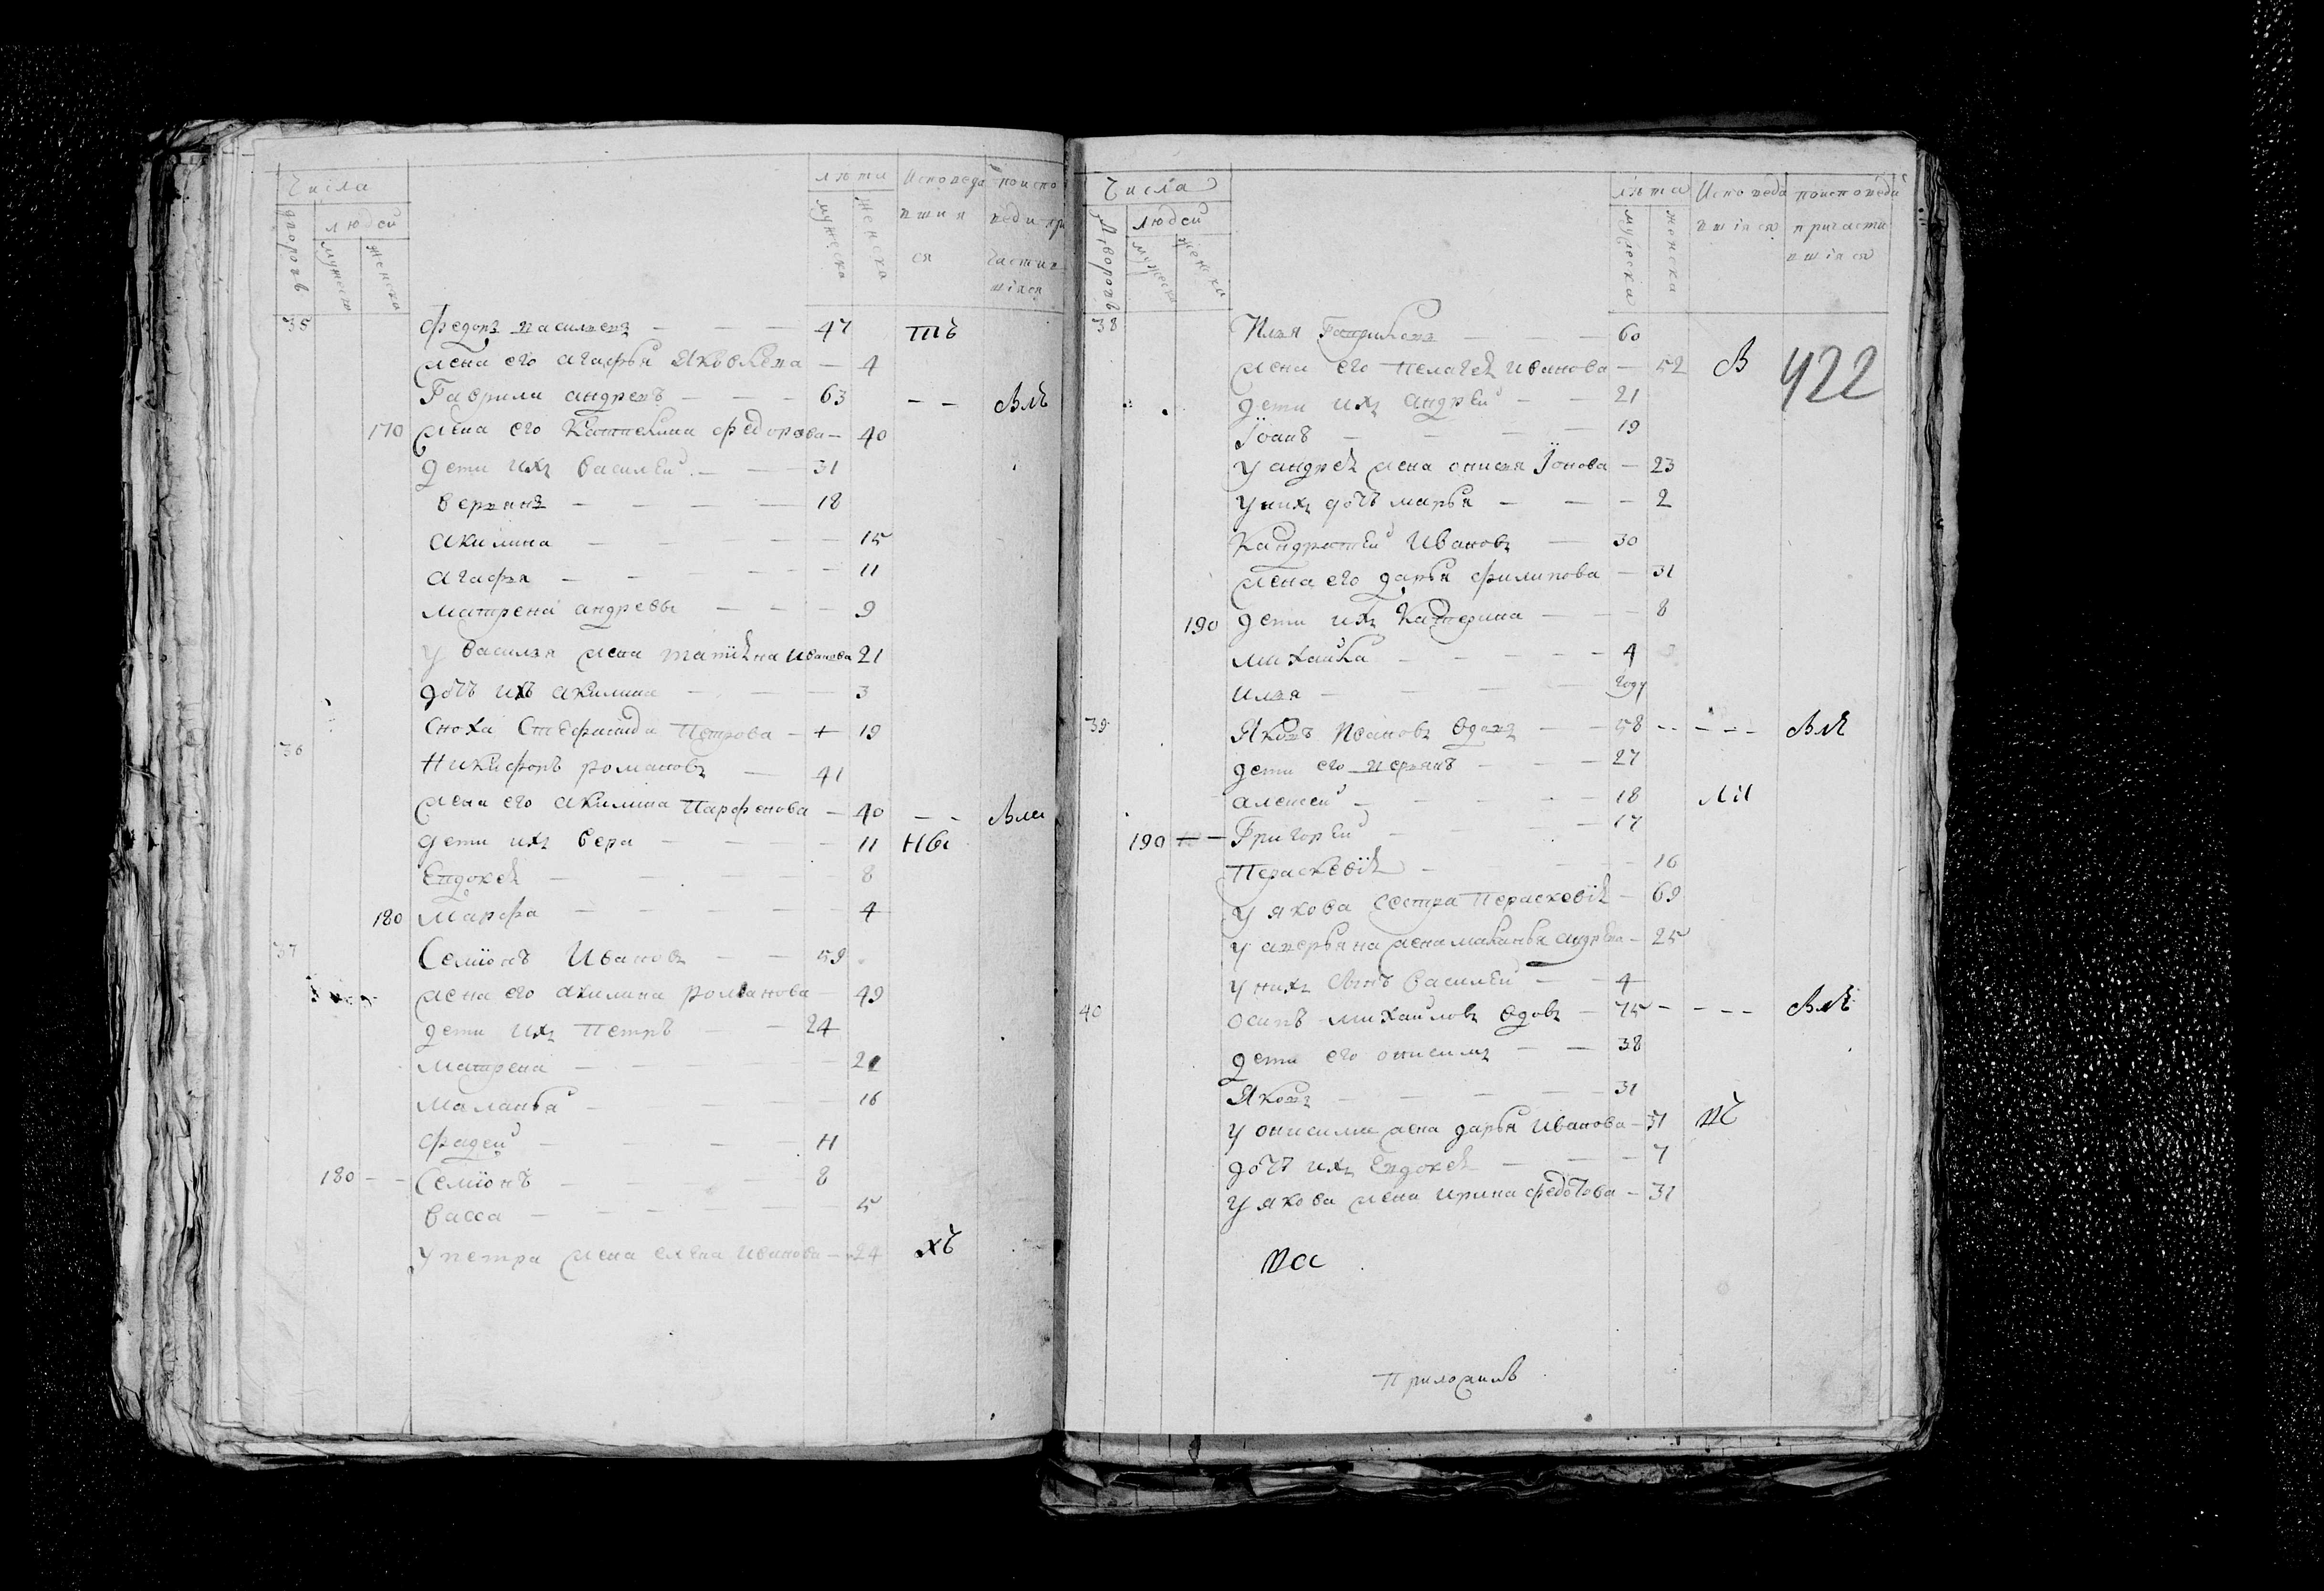 Числа
лѣта
Исповеда
поиспо
дворовъ
людей
мужеска
женска
мужеска
женска
вшия
веди при
ся
частив
шіяся
35 Федоръ васильевъ — — — 47 тъ
жена его агафья Яковлева — 4
Гаврила андреевъ — — — 63 — — влъ
170 жена его Катерина федорова — 40
дети ихъ василей — — 31
аверянъ — — — — 18
акилина — — — — 15
агафья — — — — 11
матрена андревы — — — 9
У василья жена татияна иванова 21
дочь ихъ акилина — — — 3
сноха Стефанида Петрова — + 19
36 Никифоръ романовъ — 41
жена его акилина Парфенова — 40 — — вла
дети ихъ вера — — — 11
Евдокея — — — — 8
180 Марфа — — — — 4
37 Семіонъ Ивановъ — — 59
жена его акилина романова — 49
дети ихъ Петръ — — 24
Матрена — — — —
Маланья — — — — 16
Фадей — — — — 11
180 — — Семіонъ — — — 8
васса — — — — 5
У петра жена елена иванова — 24 хъ
Числа
лѣта
Исповеда
поисповеди
Дворовъ
людей
мужеска
женска
мужеска
женска
вшіяся
причасти
вшіяся
422
38 Илья — — — 60
жена его Пелагея иванова — 52 в
дети ихъ андрей — — 21
Іоанъ — — — — 19
У андрея жена онисья Іонова — 23
У нихъ дочь марья — — — 2
Кандратей Ивановъ — 30
жена его дарья филипова — 31
190 дети ихъ Катерина — — — 8
михайла — — — — 4
илья — — — — году
39 Яковъ Ивановъ вдовъ — — 58 — — — — влъ
дети его аверянъ — — — 27
алексей — — — — 18
190 — — Григорей — — — — 17
Пераскевія — — — — 16
У якова сестра Пераскевія — 69
У аверьяна жена маланья андреева — 25
У нихъ сынъ василей — — 4
40 осипъ михайловъ вдовъ — 75 — — — — влъ
дети его онисимъ — — 38
Яковъ — — — — 31
У онисима жена дарья иванова — 31
дочь ихъ Евдокея — — — 7
У якова жена ирина федотова — 31
Приложилъ